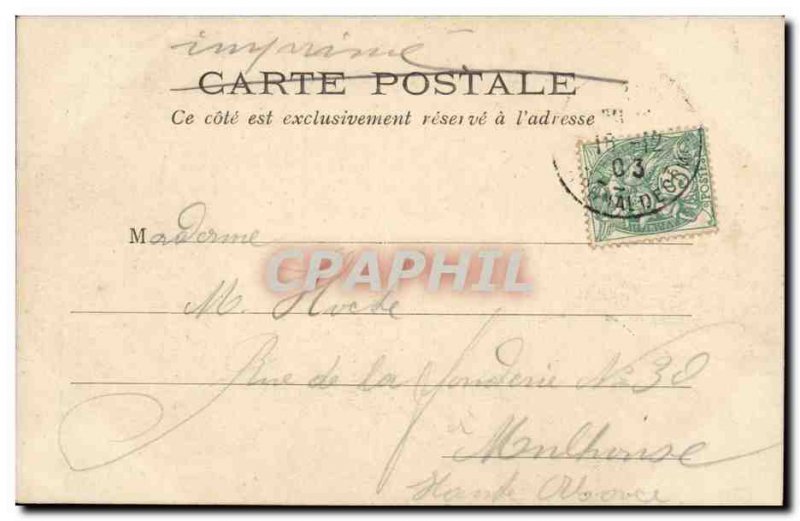 imprimé
CARTE POSTALE
Ce côté est exclusivement réservé à l'adresse
16 -12
03
POSTES
Maderme
CPARHIL
M. Hocke
Rue de la fonderie No 38
à
Mulhouse
Haute Alsace